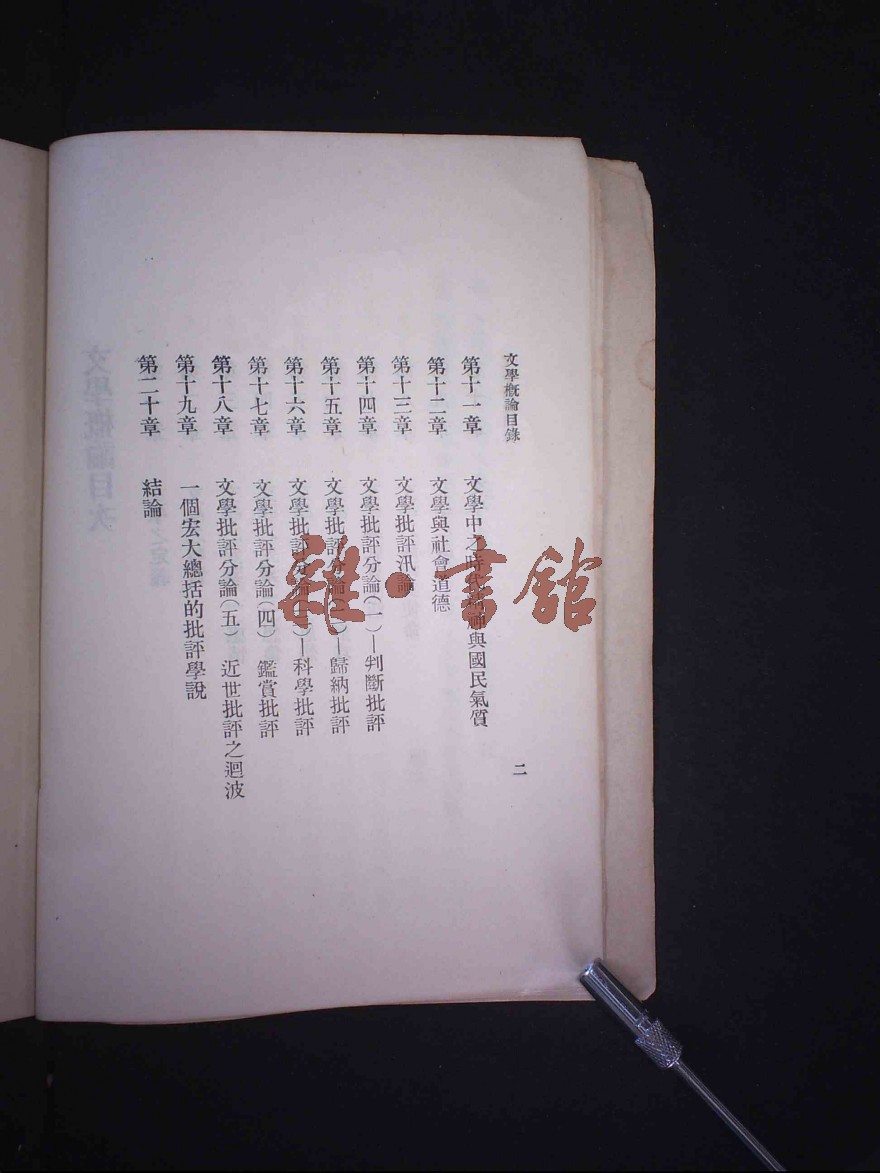 文學概論目錄
二
第十一章 文學中之時代精神與國民氣質
第十二章 文學與社會道德
第十三章 文學批評汛論
第十四章 文學批評分論(一)—判斷批評
第十五章 文學批評分論(二)—歸納批評
第十六章 文學批評分論(三)—科學批評
第十七章 文學批評分論(四) 鑑賞批評
第十八章 文學批評分論(五) 近世批評之迴波
第十九章 一個宏大總括的批評學說
第二十章 結論
雜·書館